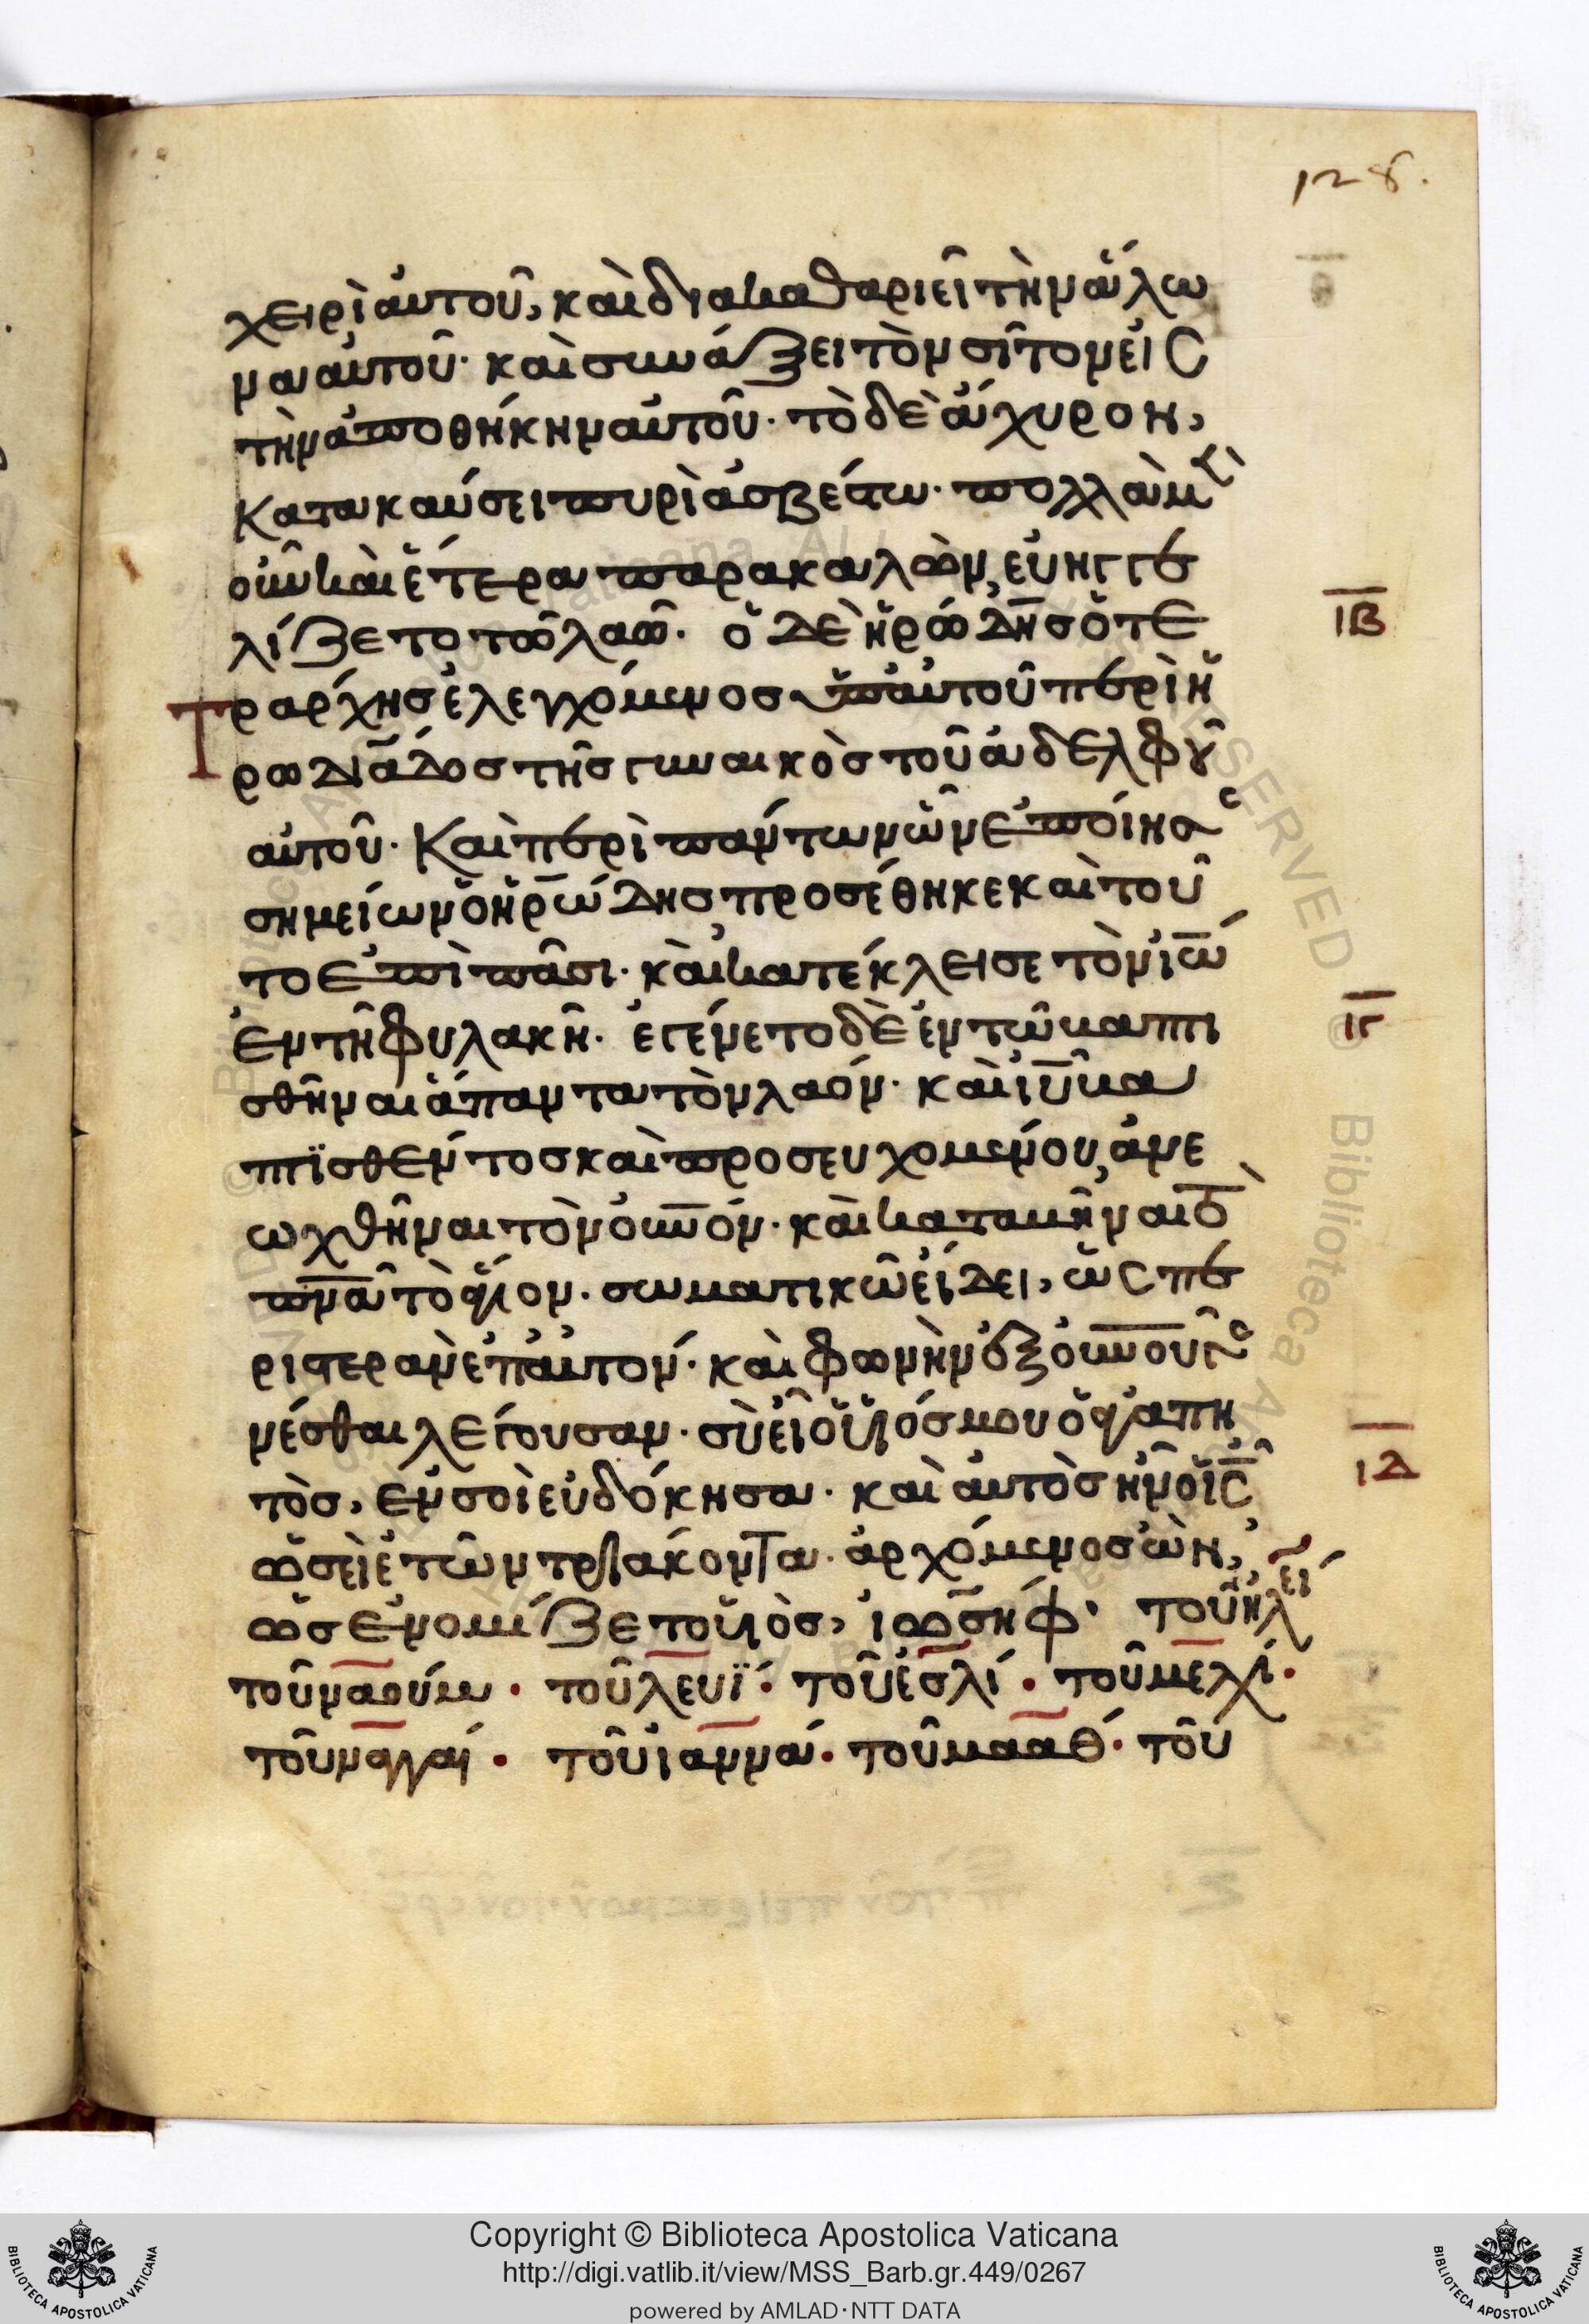 128.
χειρὶ αὐτοῦ, καὶ διακαθαριεῖ τὴν ἅλω
να αὐτοῦ· καὶ συνάξει τὸν σῖτον εἰς
τὴν ἀποθήκην αὐτοῦ· τὸ δὲ ἄχυρον,
κατακαύσει πυρὶ ἀσβέστω· πολλὰ μὲν
οὖν καὶ ἕτερα παρακαλῶν, εὐηγγε
λίζετο τῶ λαῶ· ὁ δὲ ἡρώδης ὁ τε
ΙΒ
τραρχης ἐλεγχόμενος ὑπ αὐτοῦ περὶ ἡ
ρωδιάδος τῆς γυναικὸς τοῦ ἀδελφοῦ
αὐτοῦ· Καὶ περὶ πάντων ὧν ἐποίησε
σημείων ὁ ἡρώδης προσέθηκε καὶ τοῦ
το ἐπὶ πᾶσι· καὶ κατέκλεισε τὸν ἰω
ἐν τῆ φυλακῆ· ἐγένετο δὲ ἐν τῶ βαπτι
ΙΓ
σθῆναι ἅπαντα τὸν λαόν· καὶ ἰῦ βα
πτϊσθέντος καὶ προσευχομένου, ἀνε
ωχθῆναι τὸν οὐνόν· καὶ καταβῆναι τὸ
πνᾶ τὸ ἅγιον· σωματικῶ εἴδει, ὡς πε
ριστερὰν ἐπ αὐτόν· καὶ φωνὴν ἐξ οὐνοῦ γε
νέσθαι λέγουσαν· σὺ εἶ ὁ υἱός μου ὁ ἀγαπη
τὸς, ἐν σοὶ εὐδόκησα· καὶ αὐτὸς ἦν ὁ ις
ΙΔ
ὡσεὶ ἐτῶν τριάκοντα· ἀρχόμενος ὢν,
ὡς ἐνομίζετο υἱὸς, ἰωσὴφ· τοῦ ἡλεί
τοῦ ναούμ· τοῦ λευΐ· τοῦ ἐσλί· τοῦ μελχί·
τοῦ ναγγαί· τοῦ ἰαννά· τοῦ μααθ· τοῦ
Copyright © Biblioteca Apostolica Vaticana
http://digi.vatlib.it/view/MSS_Barb.gr.449/0267
powered by AMLAD·NTT DATA
BIBLIOTECA APOSTOLICA VATICANA
BIBLIOTECA APOSTOLICA VATICANA